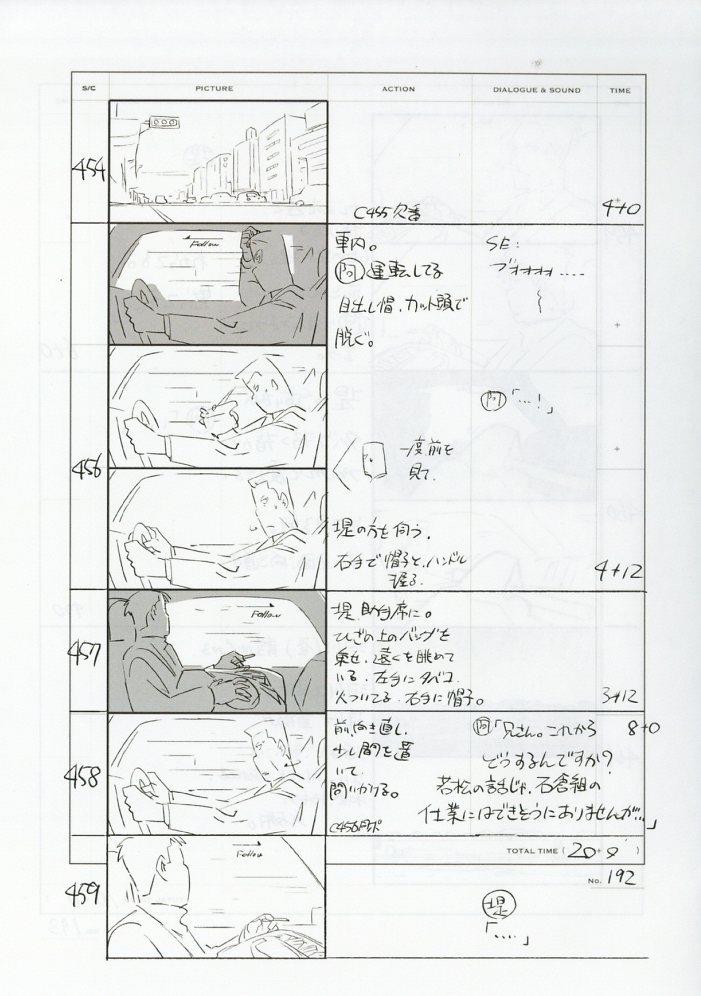 S/C PICTURE ACTION DIALOGUE & SOUND TIME
454
C455欠番
4+0
456
Follow
車内。
阿 運転してる
目出し帽、カット頭で
脱ぐ。
SE:
ブオオオオ....
阿「...!」
一度前を
見て、
堤の方を伺う。
右手で帽子と、ハンドル
握る。
4+12
457
Follow
堤、助手席に。
ひざの上のバッグを
乗せ、遠くを眺めて
いる。左手にタバコ
火ついてる。右手に帽子。
3+12
458
前向き直し、
少し間を置
いて、
問いかける。
C456同ポ
阿「兄さん。これから
どうするんですか?
若松の話じゃ、石倉組の
仕業にはできそうにありませんが...」
8+0
TOTAL TIME ( 20 + 0 )
No. 192
459
Follow
堤
「....」